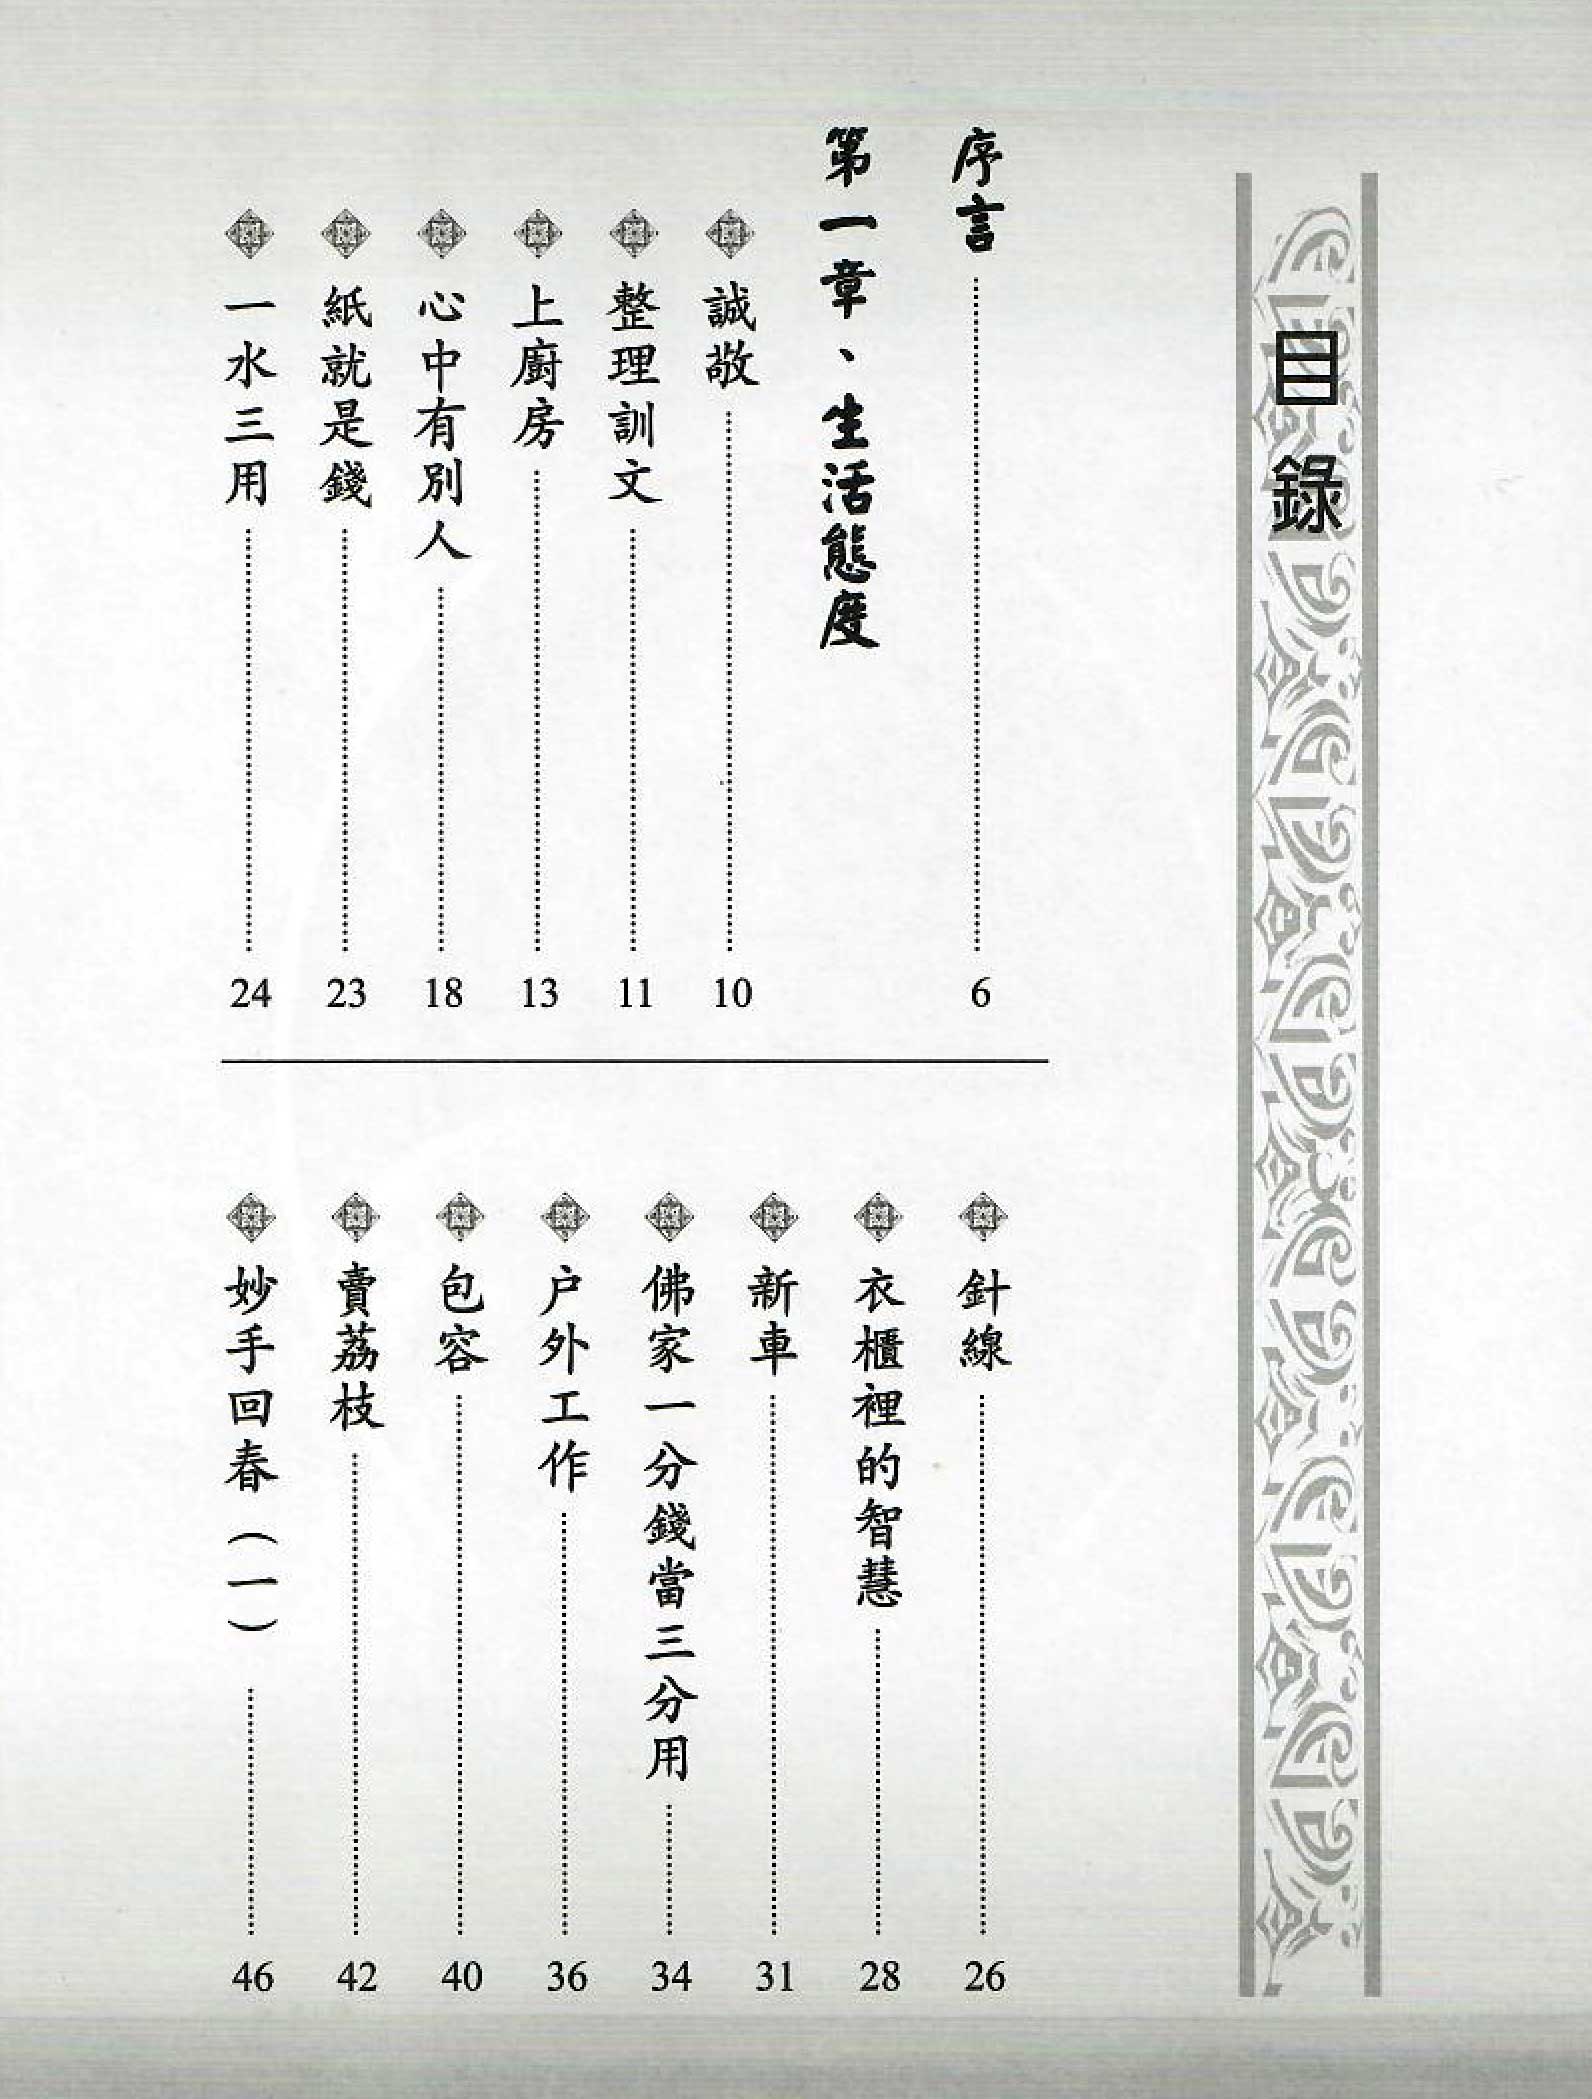 目錄
序言 6
第一章、生活態度
誠敬 10
整理訓文 11
上廚房 13
心中有別人 18
紙就是錢 23
一水三用 24
針線 26
衣櫃裡的智慧 28
新車 31
佛家一分錢當三分用 34
户外工作 36
包容 40
賣荔枝 42
妙手回春（一） 46